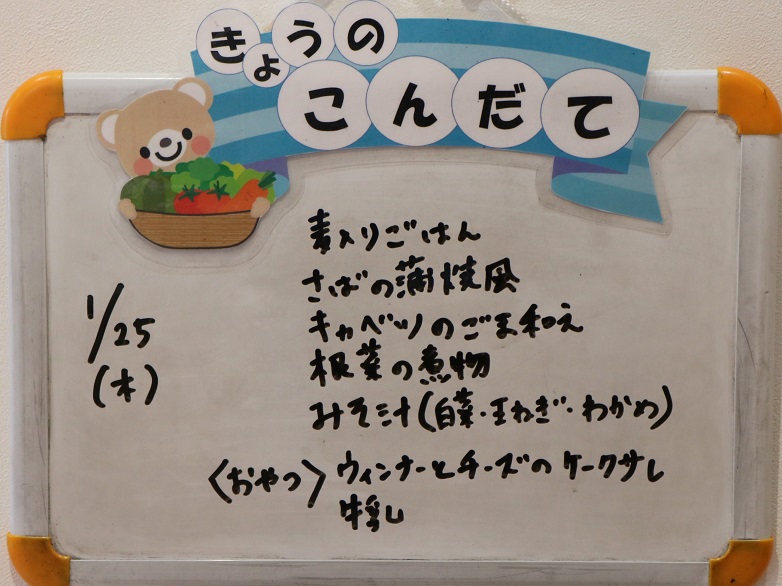 きょうの
こんだて
1/25
(木)
麦入りごはん
さばの蒲焼風
キャベツのごま和え
根菜の煮物
みそ汁(白菜・玉ねぎ・わかめ)
〈おやつ〉ウィンナーとチーズのケークサレ
牛乳